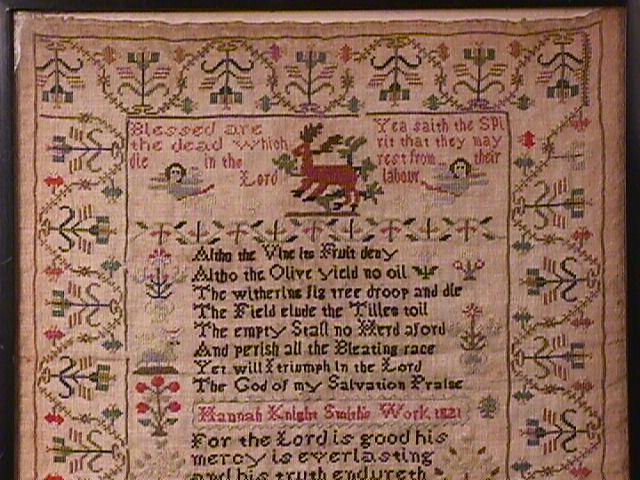 Blessed are
the dead which
die in the
Lord
Yea saith the SPi
rit that they may
rest from their
labour
Altho the Vine its Fruit deny
Altho the Olive yield no oil
The withering fig tree droop and die
The Field elude the Tilles toil
The empty Stall no Herd aford
And perish all the Bleating race
Yet will I triumph in the Lord
The God of my Salvation Praise
Hannah Knight Smiths Work 1821
For the Lord is good his
mercy is everlasting
and his truth endureth